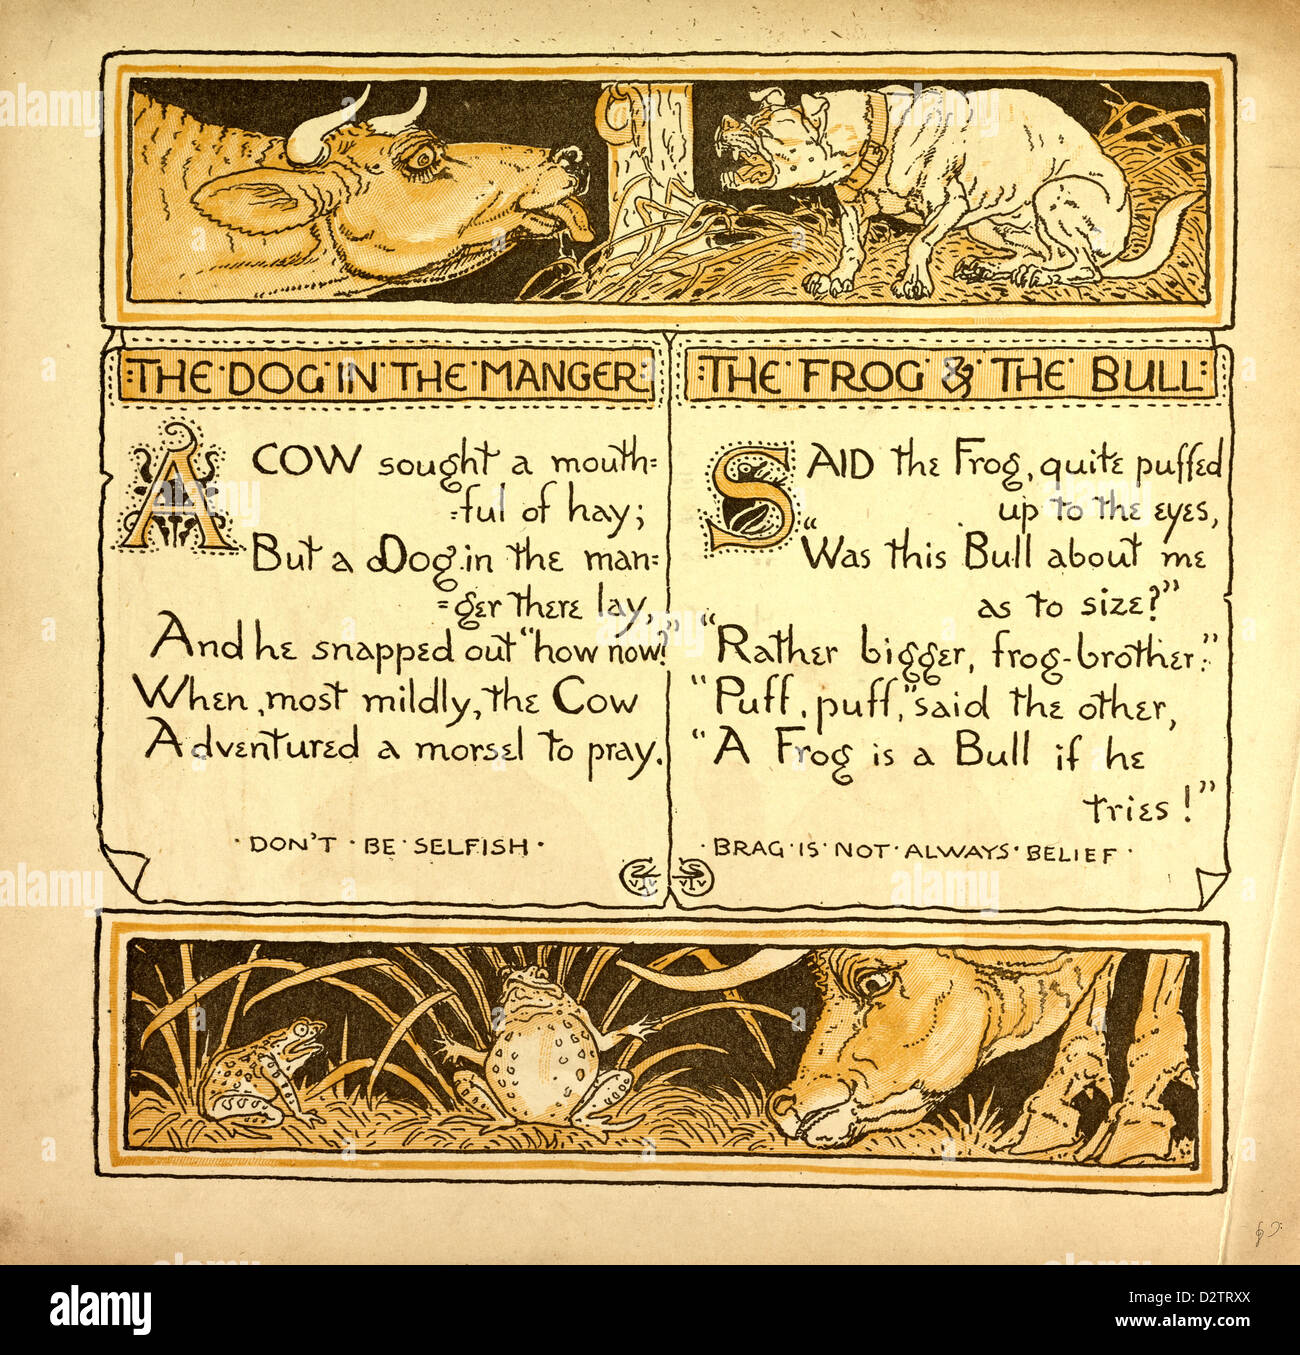 THE · DOG IN · THE · MANGER
A COW sought a mouth=
=ful of hay;
But a Dog in the man=
=ger there lay,
And he snapped out "how now?"
When, most mildly, the Cow
Adventured a morsel to pray.
· DON'T · BE · SELFISH ·
THE · FROG & THE · BULL
SAID the Frog, quite puffed
up to the eyes,
"Was this Bull about me
as to size?"
"Rather bigger, frog-brother."
"Puff, puff," said the other,
"A Frog is a Bull if he
tries!"
· BRAG · IS · NOT · ALWAYS · BELIEF ·
alamy
Image ID: D2TRXX
www.alamy.com